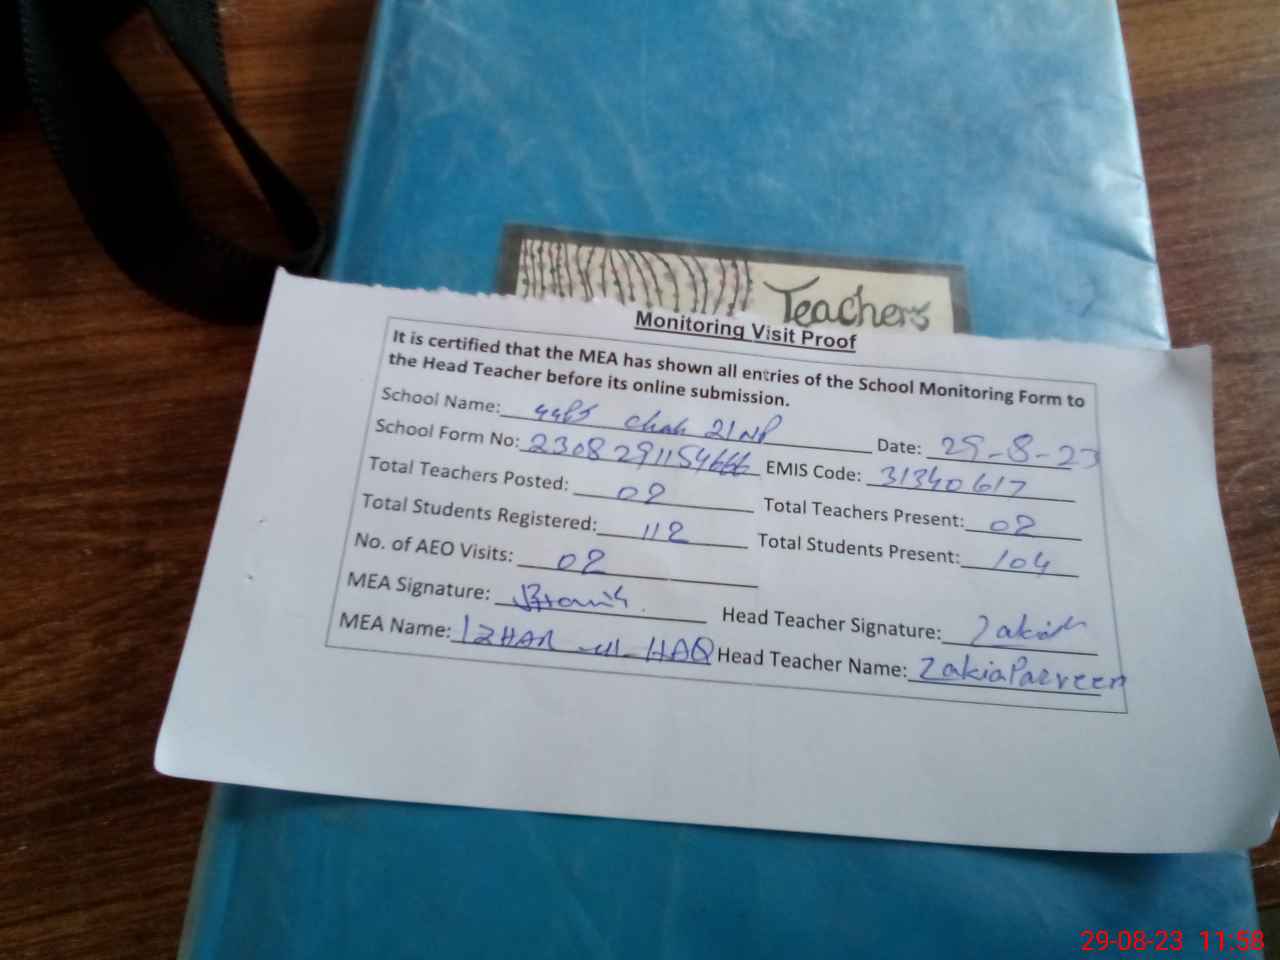 Teachers
Monitoring Visit Proof
It is certified that the MEA has shown all entries of the School Monitoring Form to
the Head Teacher before its online submission.
School Name: GGPS Chak 21 NP Date: 29-8-23
School Form No: 230829115466 EMIS Code: 31340617
Total Teachers Posted: 02 Total Teachers Present: 02
Total Students Registered: 112 Total Students Present: 104
No. of AEO Visits: 02
MEA Signature: Head Teacher Signature: Zakia
MEA Name: IZHAR ul HAQ Head Teacher Name: Zakia Parveen
29-08-23 11:58